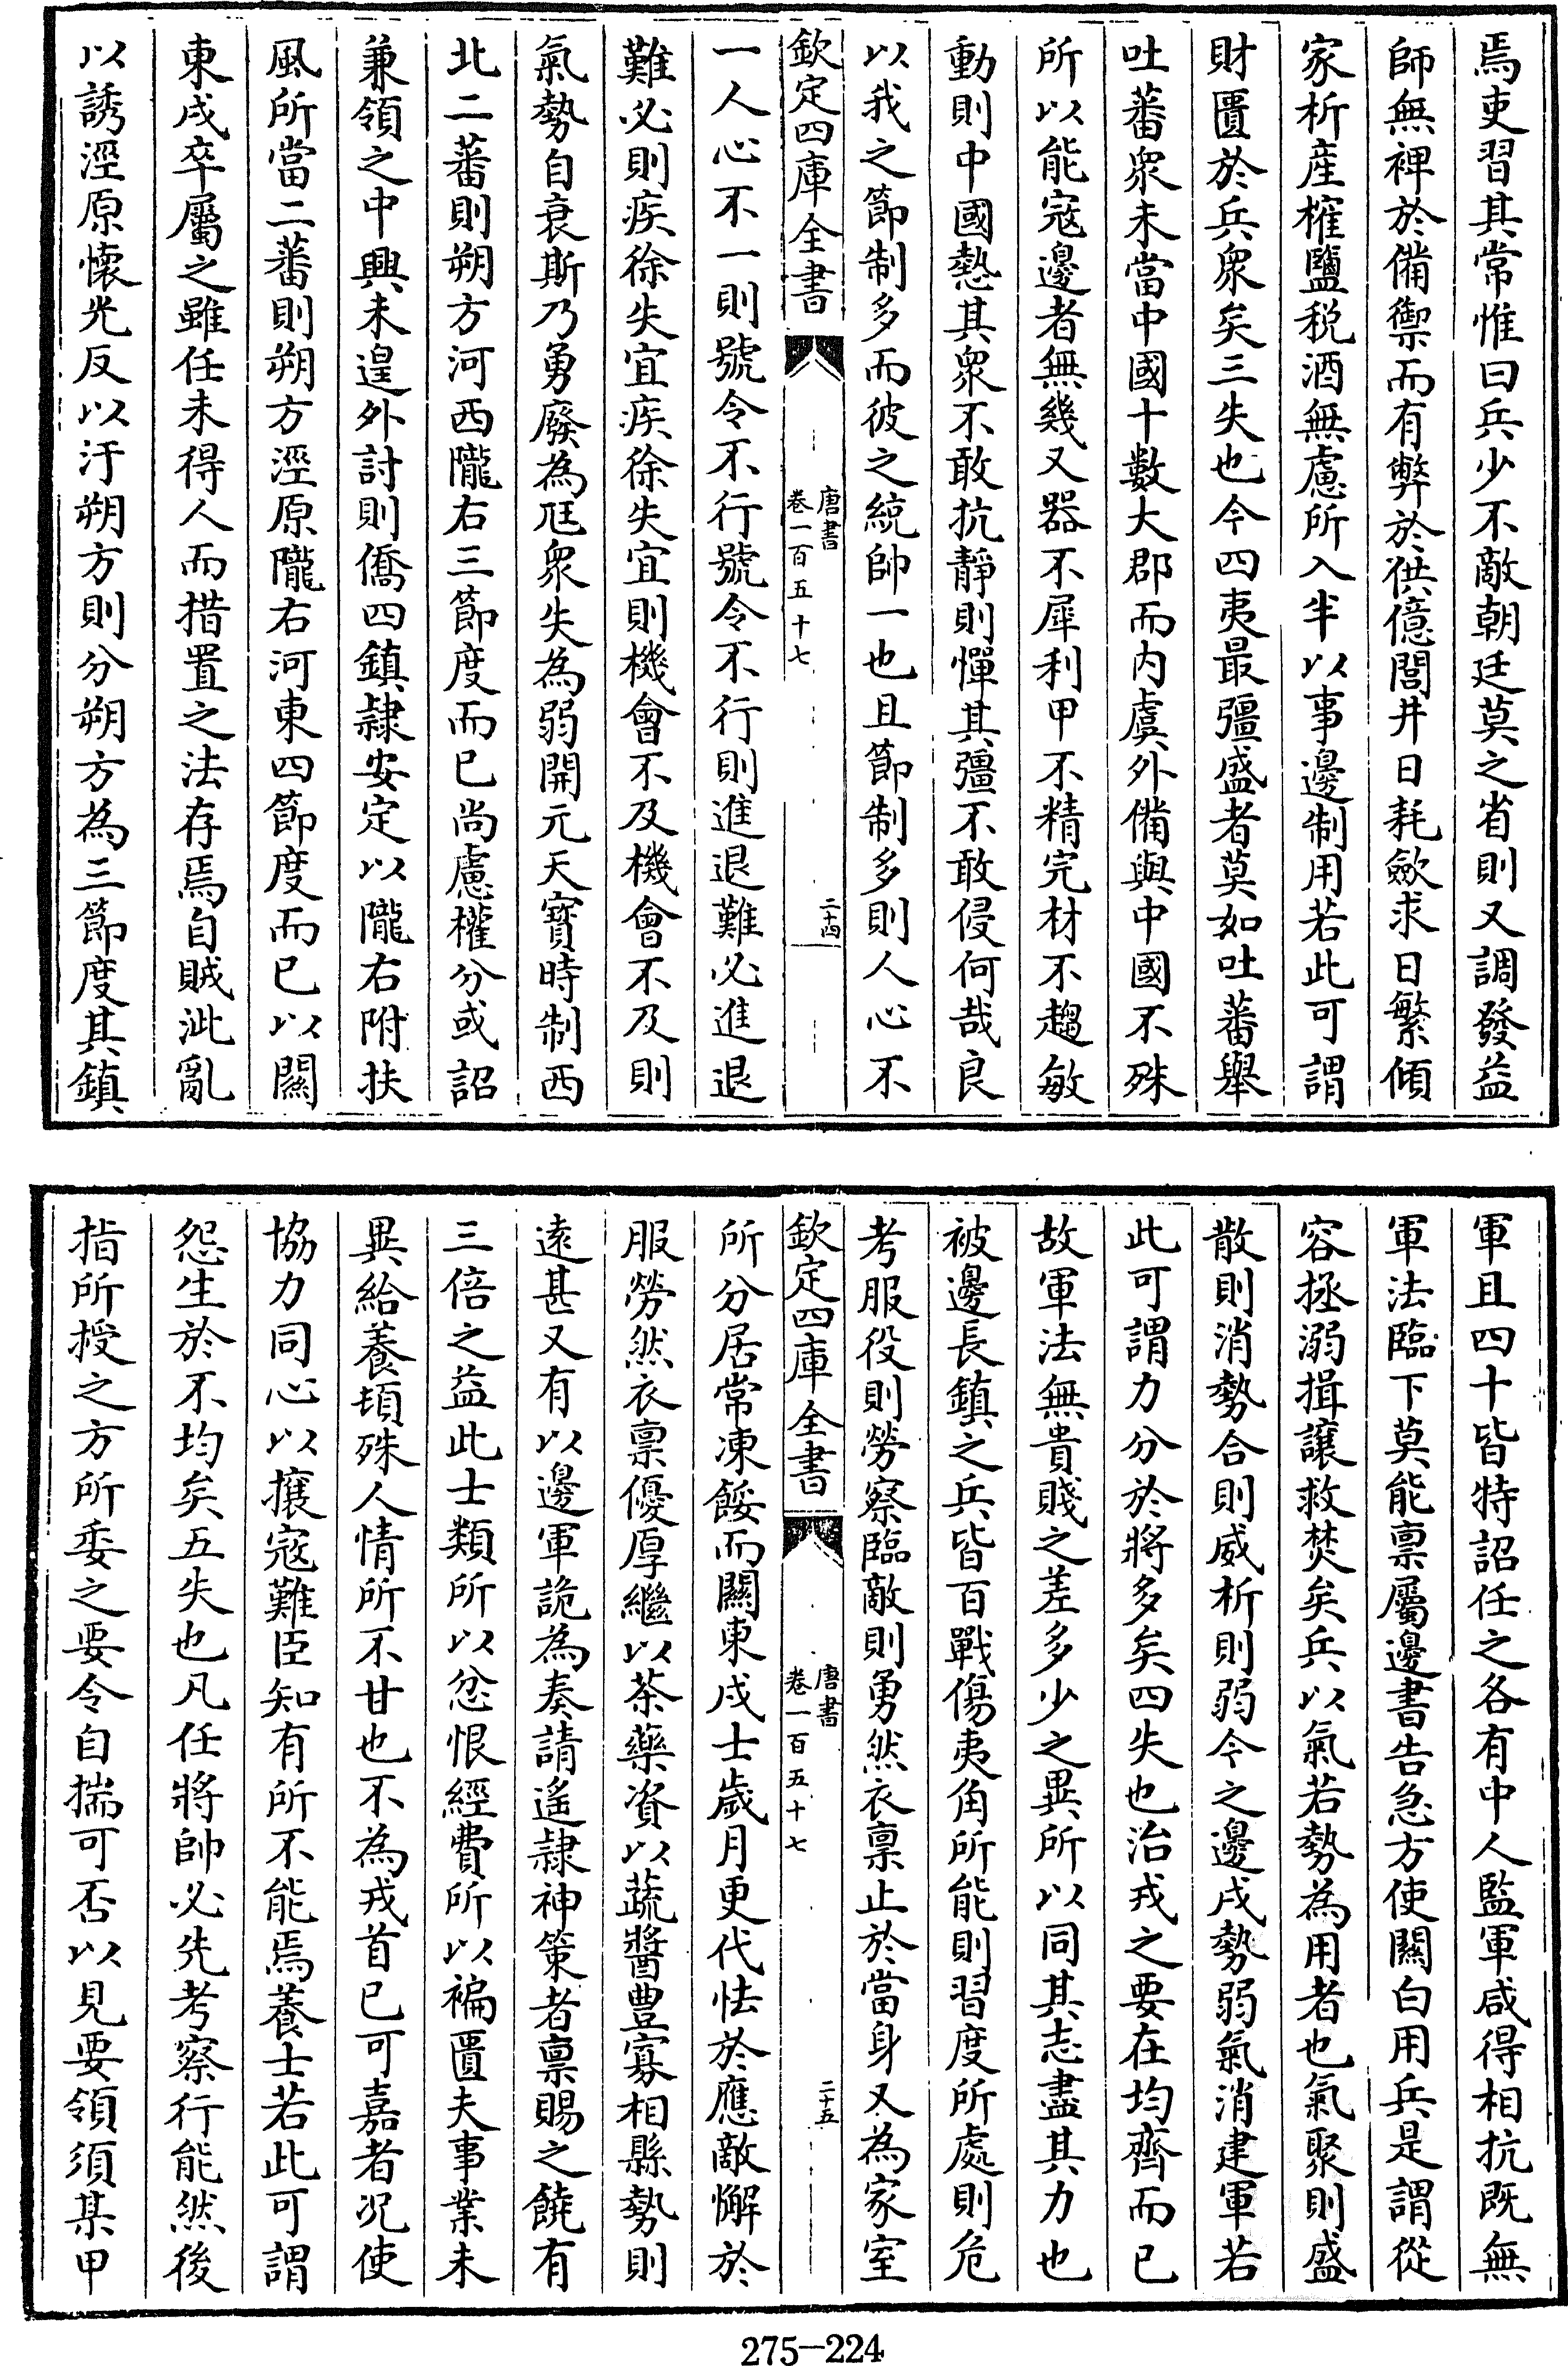 焉吏習其常惟曰兵少不敵朝廷莫之省則又調發益
師無裨於備禦而有弊於供億閭井日耗歛求日繁傾
家析産榷鹽税酒無慮所入半以事邊制用若此可謂
財匱於兵衆矣三失也今四夷最彊盛者莫如吐蕃舉
吐蕃衆未當中國十數大郡而内虞外備與中國不殊
所以能宼邊者無幾又器不犀利甲不精完材不趫敏
動則中國慹其衆不敢抗靜則憚其彊不敢侵何哉良
以我之節制多而彼之統帥一也且節制多則人心不
欽定四庫全書
唐書
卷一百五十七
二十四
一人心不一則號令不行號令不行則進退難必進退
難必則疾徐失宜疾徐失宜則機會不及機會不及則
氣勢自衰斯乃勇廢為尫衆失為弱開元天寶時制西
北二蕃則朔方河西隴右三節度而已尚慮權分或詔
兼領之中興未遑外討則僑四鎮隷安定以隴右附扶
風所當二蕃則朔方涇原隴右河東四節度而已以關
東戍卒屬之雖任未得人而措置之法存焉自賊泚亂
以誘涇原懷光反以汙朔方則分朔方為三節度其鎮
軍且四十皆特詔任之各有中人監軍咸得相抗既無
軍法臨下莫能稟屬邊書告急方使關白用兵是謂從
容拯溺揖讓救焚矣兵以氣若勢為用者也氣聚則盛
散則消勢合則威析則弱今之邊戍勢弱氣消建軍若
此可謂力分於將多矣四失也治戎之要在均齊而已
故軍法無貴賤之差多少之異所以同其志盡其力也
被邊長鎮之兵皆百戰傷夷角所能則習度所處則危
考服役則勞察臨敵則勇然衣稟止於當身又為家室
欽定四庫全書
唐書
卷一百五十七
二十五
所分居常凍餒而關東戍士歲月更代怯於應敵懈於
服勞然衣稟優厚繼以茶藥資以蔬醬豊寡相縣勢則
遠甚又有以邊軍詭為奏請遙隷神策者稟賜之饒有
三倍之益此士類所以忿恨經費所以褊匱夫事業未
異給養頓殊人情所不甘也不為戎首已可嘉者况使
協力同心以攘宼難臣知有所不能焉養士若此可謂
怨生於不均矣五失也凡任將帥必先考察行能然後
指所授之方所委之要令自揣可否以見要領須某甲
275-224